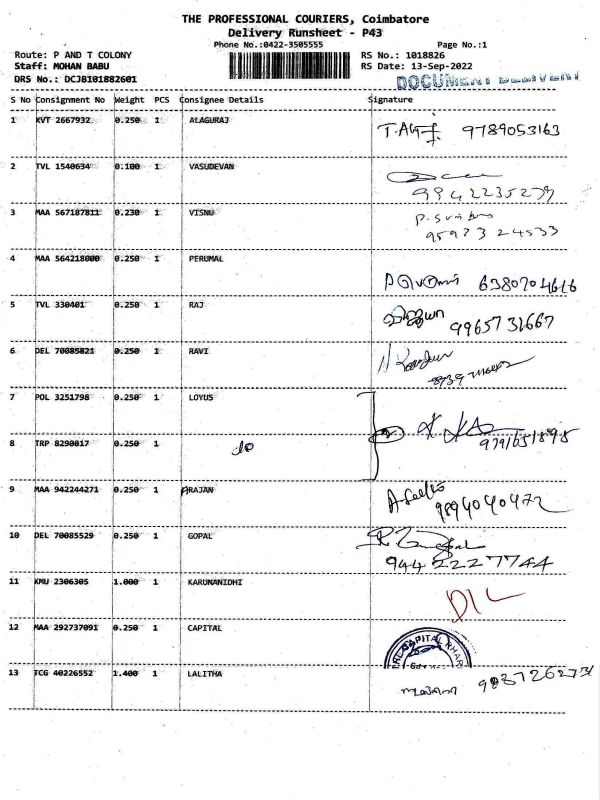 THE PROFESSIONAL COURIERS, Coimbatore
Delivery Runsheet - P43
Phone No.:0422-3505555 Page No.:1
Route: P AND T COLONY RS No.: 1018826
Staff: MOHAN BABU RS Date: 13-Sep-2022
DRS No.: DCJB101882601 DOCUMENT
S No Consignment No Weight PCS Consignee Details Signature
1 KVT 2667932 0.250 1 ALAGURAJ 9789053163
2 TVL 1540634 0.100 1 VASUDEVAN
9942235279
3 MAA 567187811 0.230 1 VISNU
95973 24533
4 MAA 564218000 0.250 1 PERUMAL
6380704616
5 TVL 330401 0.250 1 RAJ
9965731667
6 DEL 70085821 0.250 1 RAVI
7 POL 3251798 0.250 1 LOYUS
9791651895
8 TRP 8290817 0.250 1 do
9 MAA 942244271 0.250 1 ARAJAN
9894040472
10 DEL 70085529 0.250 1 GOPAL
944 222 7744
11 KMU 2306305 1.000 1 KARUNANIDHI
D/L
12 MAA 292737091 0.250 1 CAPITAL
CAPITAL
13 TCG 40226552 1.400 1 LALITHA